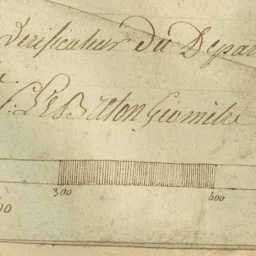 Verificateur Du Depar
LeBreton Géomètre
300 600
00